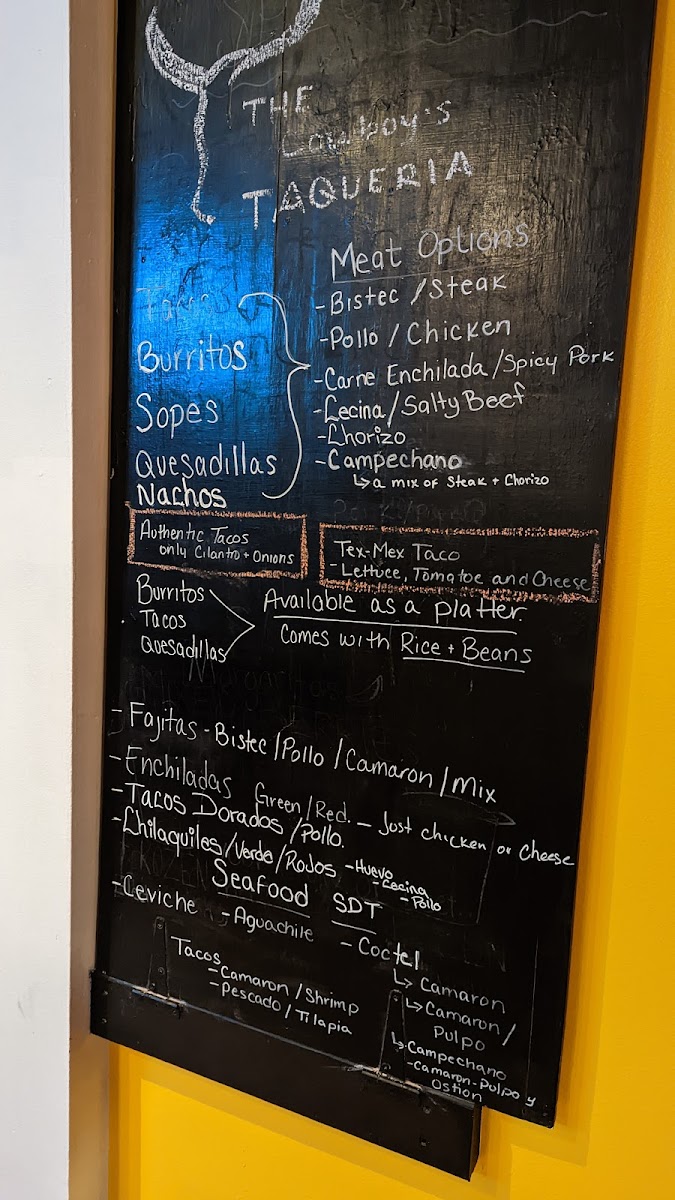 THE
Cowboy's
TAQUERIA
Meat Options
Tacos
Burritos
Sopes
Quesadillas
Nachos
-Bistec / Steak
-Pollo / Chicken
-Carne Enchilada/Spicy Pork
-Cecina/Salty Beef
-Chorizo
-Campechano
↳ a mix of Steak + Chorizo
Authentic Tacos
only Cilantro + Onions
Tex-Mex Taco
-Lettuce, Tomatoe and Cheese
Burritos
Tacos
Quesadillas
Available as a platter.
Comes with Rice + Beans
-Fajitas - Bistec/Pollo/Camaron/Mix
-Enchiladas Green/Red. - Just chicken or Cheese
-Tacos Dorados/Pollo.
-Chilaquiles/Verde/Rojos -Huevo
-Cecina
-Pollo
Seafood SDT
-Ceviche -Aguachile -Coctel
↳ Camaron
↳ Camaron/
Pulpo
↳ Campechano
-Camaron-Pulpo y
Ostion
Tacos
-Camaron/Shrimp
-Pescado/Tilapia